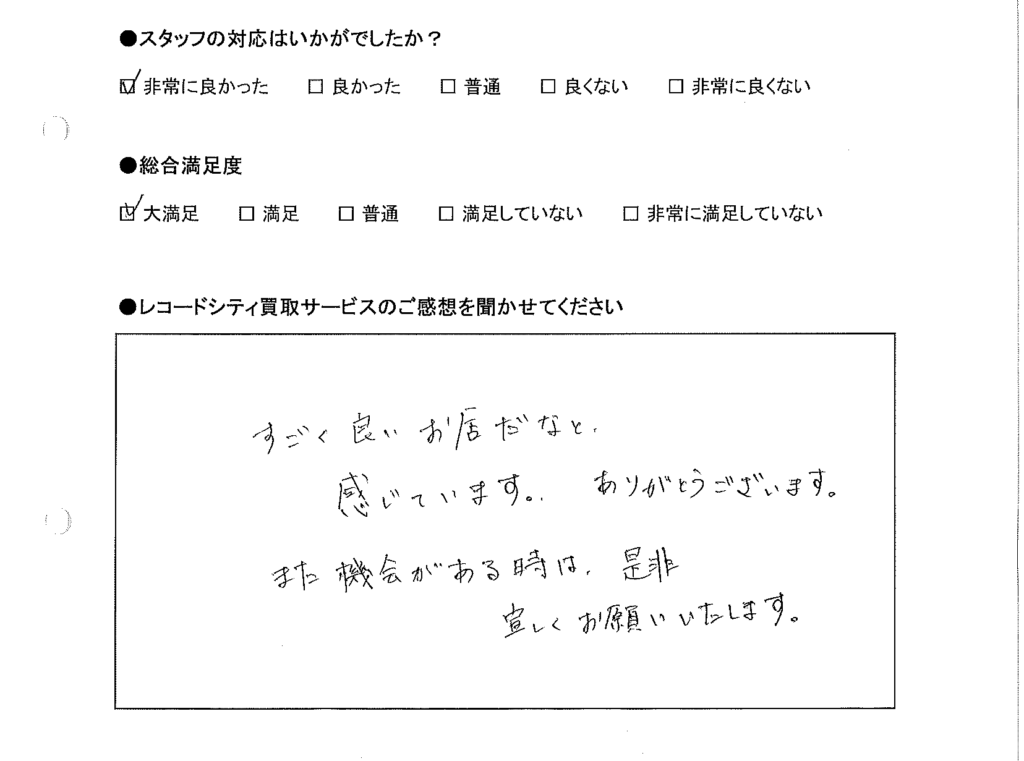 ●スタッフの対応はいかがでしたか？
☑非常に良かった □良かった □普通 □良くない □非常に良くない
●総合満足度
☑大満足 □満足 □普通 □満足していない □非常に満足していない
●レコードシティ買取サービスのご感想を聞かせてください
すごく良いお店だなと、
感じています。. ありがとうございます。
また機会がある時は、是非
宜しくお願いいたします。